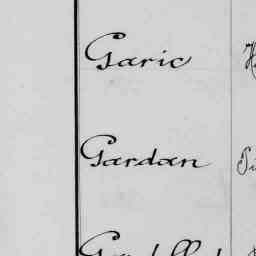 Garic
Gardan